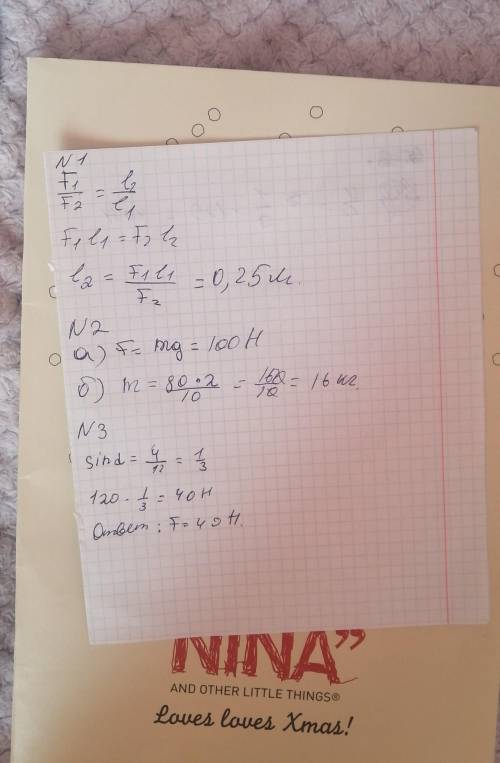 N1
F1/F2 = l2/l1
F1 l1 = F2 l2
l2 = F1 l1/F2 = 0,25м.
N2
а) F = mg = 100Н
б) m = 80·2/10 = 160/10 = 16 кг.
N3
sinα = 4/12 = 1/3
120 · 1/3 = 40Н
Ответ: F = 40Н.
NINA”
AND OTHER LITTLE THINGS®
Loves loves Xmas!